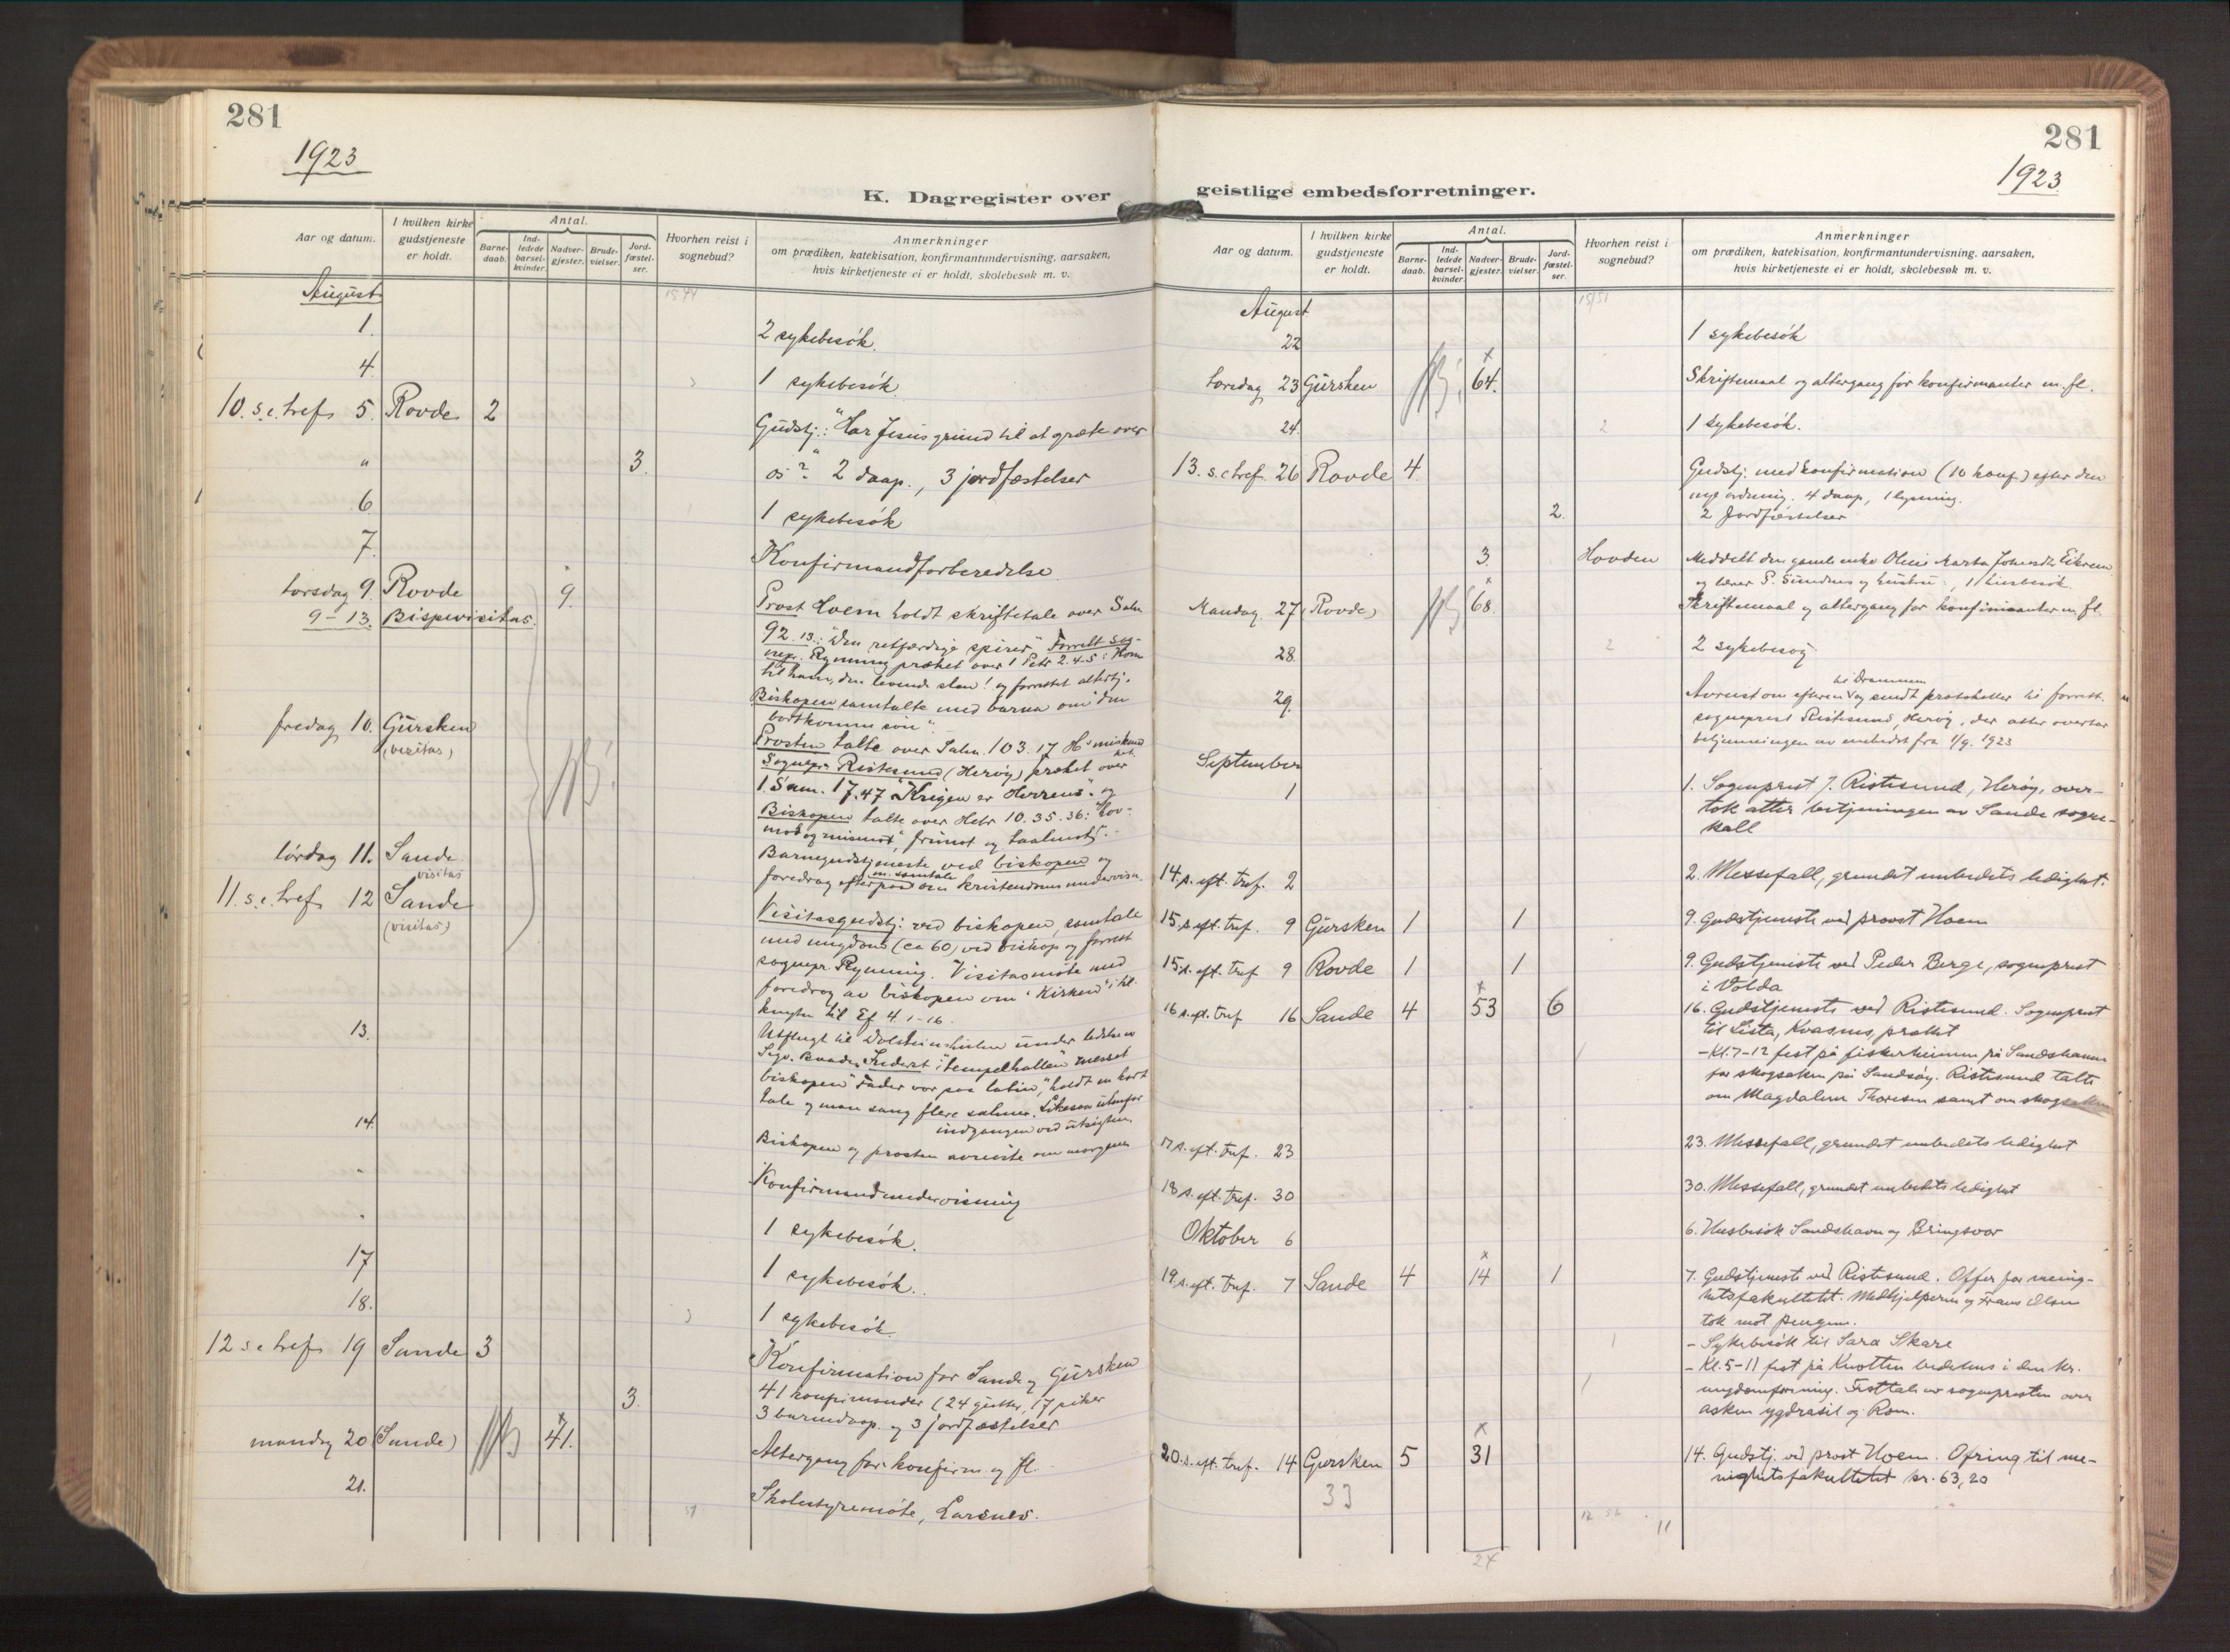 281
1923
K. Dagregister over
Aar og datum.
I hvilken kirke gudstjeneste er holdt.
Antal.
Barne-daab.
Ind-ledede barsel-kvinder.
Nadver-gjester.
Brude-vielser.
Jord-fæstel-ser.
Hvorhen reist i sognebud?
Anmerkninger
om prædiken, katekisation, konfirmantundervisning, aarsaken,
hvis kirketjeneste ei er holdt, skolebesøk m. v.
August
1. 2 sykebesök.
4. 1 sykebesök.
10. s. e. tref 5. Rovde 2 Gudstj.: "Har Jesus grund til at græte over
" 3. os?" 2 daap., 3 jordfæstelser
6. 1 sykebesök
7. Konfirmandforberedelse
torsdag 9. Rovde 9. Prost Hoem holdt skriftetale over Salm
9-13. Bispevisitas. 92.13: "Den retfærdige spirer". Forrett. sog-
nepr. Rynning præket over 1 Petr 2.4-5: Kom
til ham, den levende sten! og forrettet altertj.
Biskopen samtalte med barna om "den
bortkomne sön".
fredag 10. Gursken
(visitas)
Prosten talte over Salm. 103.17 H's miskund
het.
Sognepr. Ristesund (Heröy) præket over
1. Sam. 17.47 "Krigen er Herrens". og
Biskopen talte over Hebr 10.35.36: "Hov-
mod og mismot, frimot og taalmot".
lördag 11. Sande
visitas
Barnegudstjeneste ved biskopen og
m. samtale
foredrag efterpaa om kristendomsundervisn.
11. s. e. tref 12 Sande
(visitas)
Visitasgudstj. ved biskopen, samtale
med ungdom (ca 60) ved biskop og forrett
sognepr. Rynning. Visitasmöte med
foredrag av biskopen om "Kirken" i til-
knytn. til Ef. 4.1-16.
13. Utflugt til Dolsteinshulen under ledelse av
Sigv. Inderst i "tempelhallen" messet
biskopen "Fader vor paa latin", holdt en kort
tale og man sang flere salmer. Likesaa utenfor
indgangen ved utsigten.
14. Biskopen og prosten avreiste om morgenen
" Konfirmandundervisning
" 1 sykebesök.
17 1 sykebesök.
18. 1 sykebesök.
12 s e tref 19 Sande 3 Konfirmation for Sande og Gursken
41 konfirmander (24 gutter, 17 piker
3. 3 barnedaap. og 3 jordfæstelser
mandag 20 (Sande) 41. Altergang for konfirm og fl.
21. Skolestyremöte, Larsnes.
281
1923
geistlige embedsforretninger.
Aar og datum.
I hvilken kirke gudstjeneste er holdt.
Antal.
Barne-daab.
Ind-ledede barsel-kvinder.
Nadver-gjester.
Brude-vielser.
Jord-fæstel-ser.
Hvorhen reist i sognebud?
Anmerkninger
om prædiken, katekisation, konfirmantundervisning, aarsaken,
hvis kirketjeneste ei er holdt, skolebesøk m. v.
August
22 1 sykebesök
torsdag 23 Gursken 64. Skriftemaal og altergang for konfirmanter m. fl.
24. 2 1 sykebesök.
13. s. e tref. 26 Rovde 4 Gudstj. med konfirmation (10 konf.) efter den
nye ordning. 4 daap, 1 lysning.
2. 2 Jordfæstelser
3. Hovden Meddelt den gamle enke Oline Marta Eikrem
og lærer P. Sundnes og hustru, 1 husbesök.
Mandag 27 (Rovde) 68. Skriftemaal og altergang for konfirmanter m. fl.
28. 2 2 sykebesøg
til Drammen
29. Avreist om eftermd og sendt protokoller til forrett.
sogneprest Ristesund, Heröy, der atter overtar
betjeningen av embedet fra 1/9. 1923
September
1 1. Sogneprest J. Ristesund, Herøy, over-
tok atter betjeningen av Sande sogne-
kall
14. s. eft. tref. 2 2. Messefall, grundet embedets ledighet.
15. s. eft. tref. 9 Gursken 1 1 9. Gudstjeneste ved provst Hoem
15. s. eft. tref 9 Rovde 1 1 9. Gudstjeneste ved Peder Berge, sogneprest
i Volda
16 s. eft. tref 16 Sande 4 53 6 16. Gudstjeneste ved Ristesund. Sogneprest
til Lista, Kvasnes, preket
- Kl. 7-12 fest på fiskerheimen på Sandshamn
for skogsaken på Sandsøy. Ristesund talte
om Magdalene Thoresen samt om skogsaken
17 s. eft. tref. 23 23. Messefall, grundet embedets ledighet
18 s. eft. tref. 30 30. Messefall, grundet embedets ledighet
Oktober 6 6. Husbesøk Sandshavn og Bringsvor
19 s. eft. tref. 7 Sande 4 14 1 7. Gudstjeneste ved Ristesund. Offer for menig-
hetsfakultetet. Medhjelperen og Frans Olsen
tok mot pengene.
- Sykebesøk til Sara Skare
- Kl. 5-11 fest på Knotten bedehus i den kr.
ungdomforening. Festtale av sognepresten over
asken ygdrasil og Rom.
20. s. eft. tref. 14 Gursken 5 31 14. Gudstj. ved prost Hoem. Ofring til me-
nighetsfakultetet kr. 63,20
33
24
11